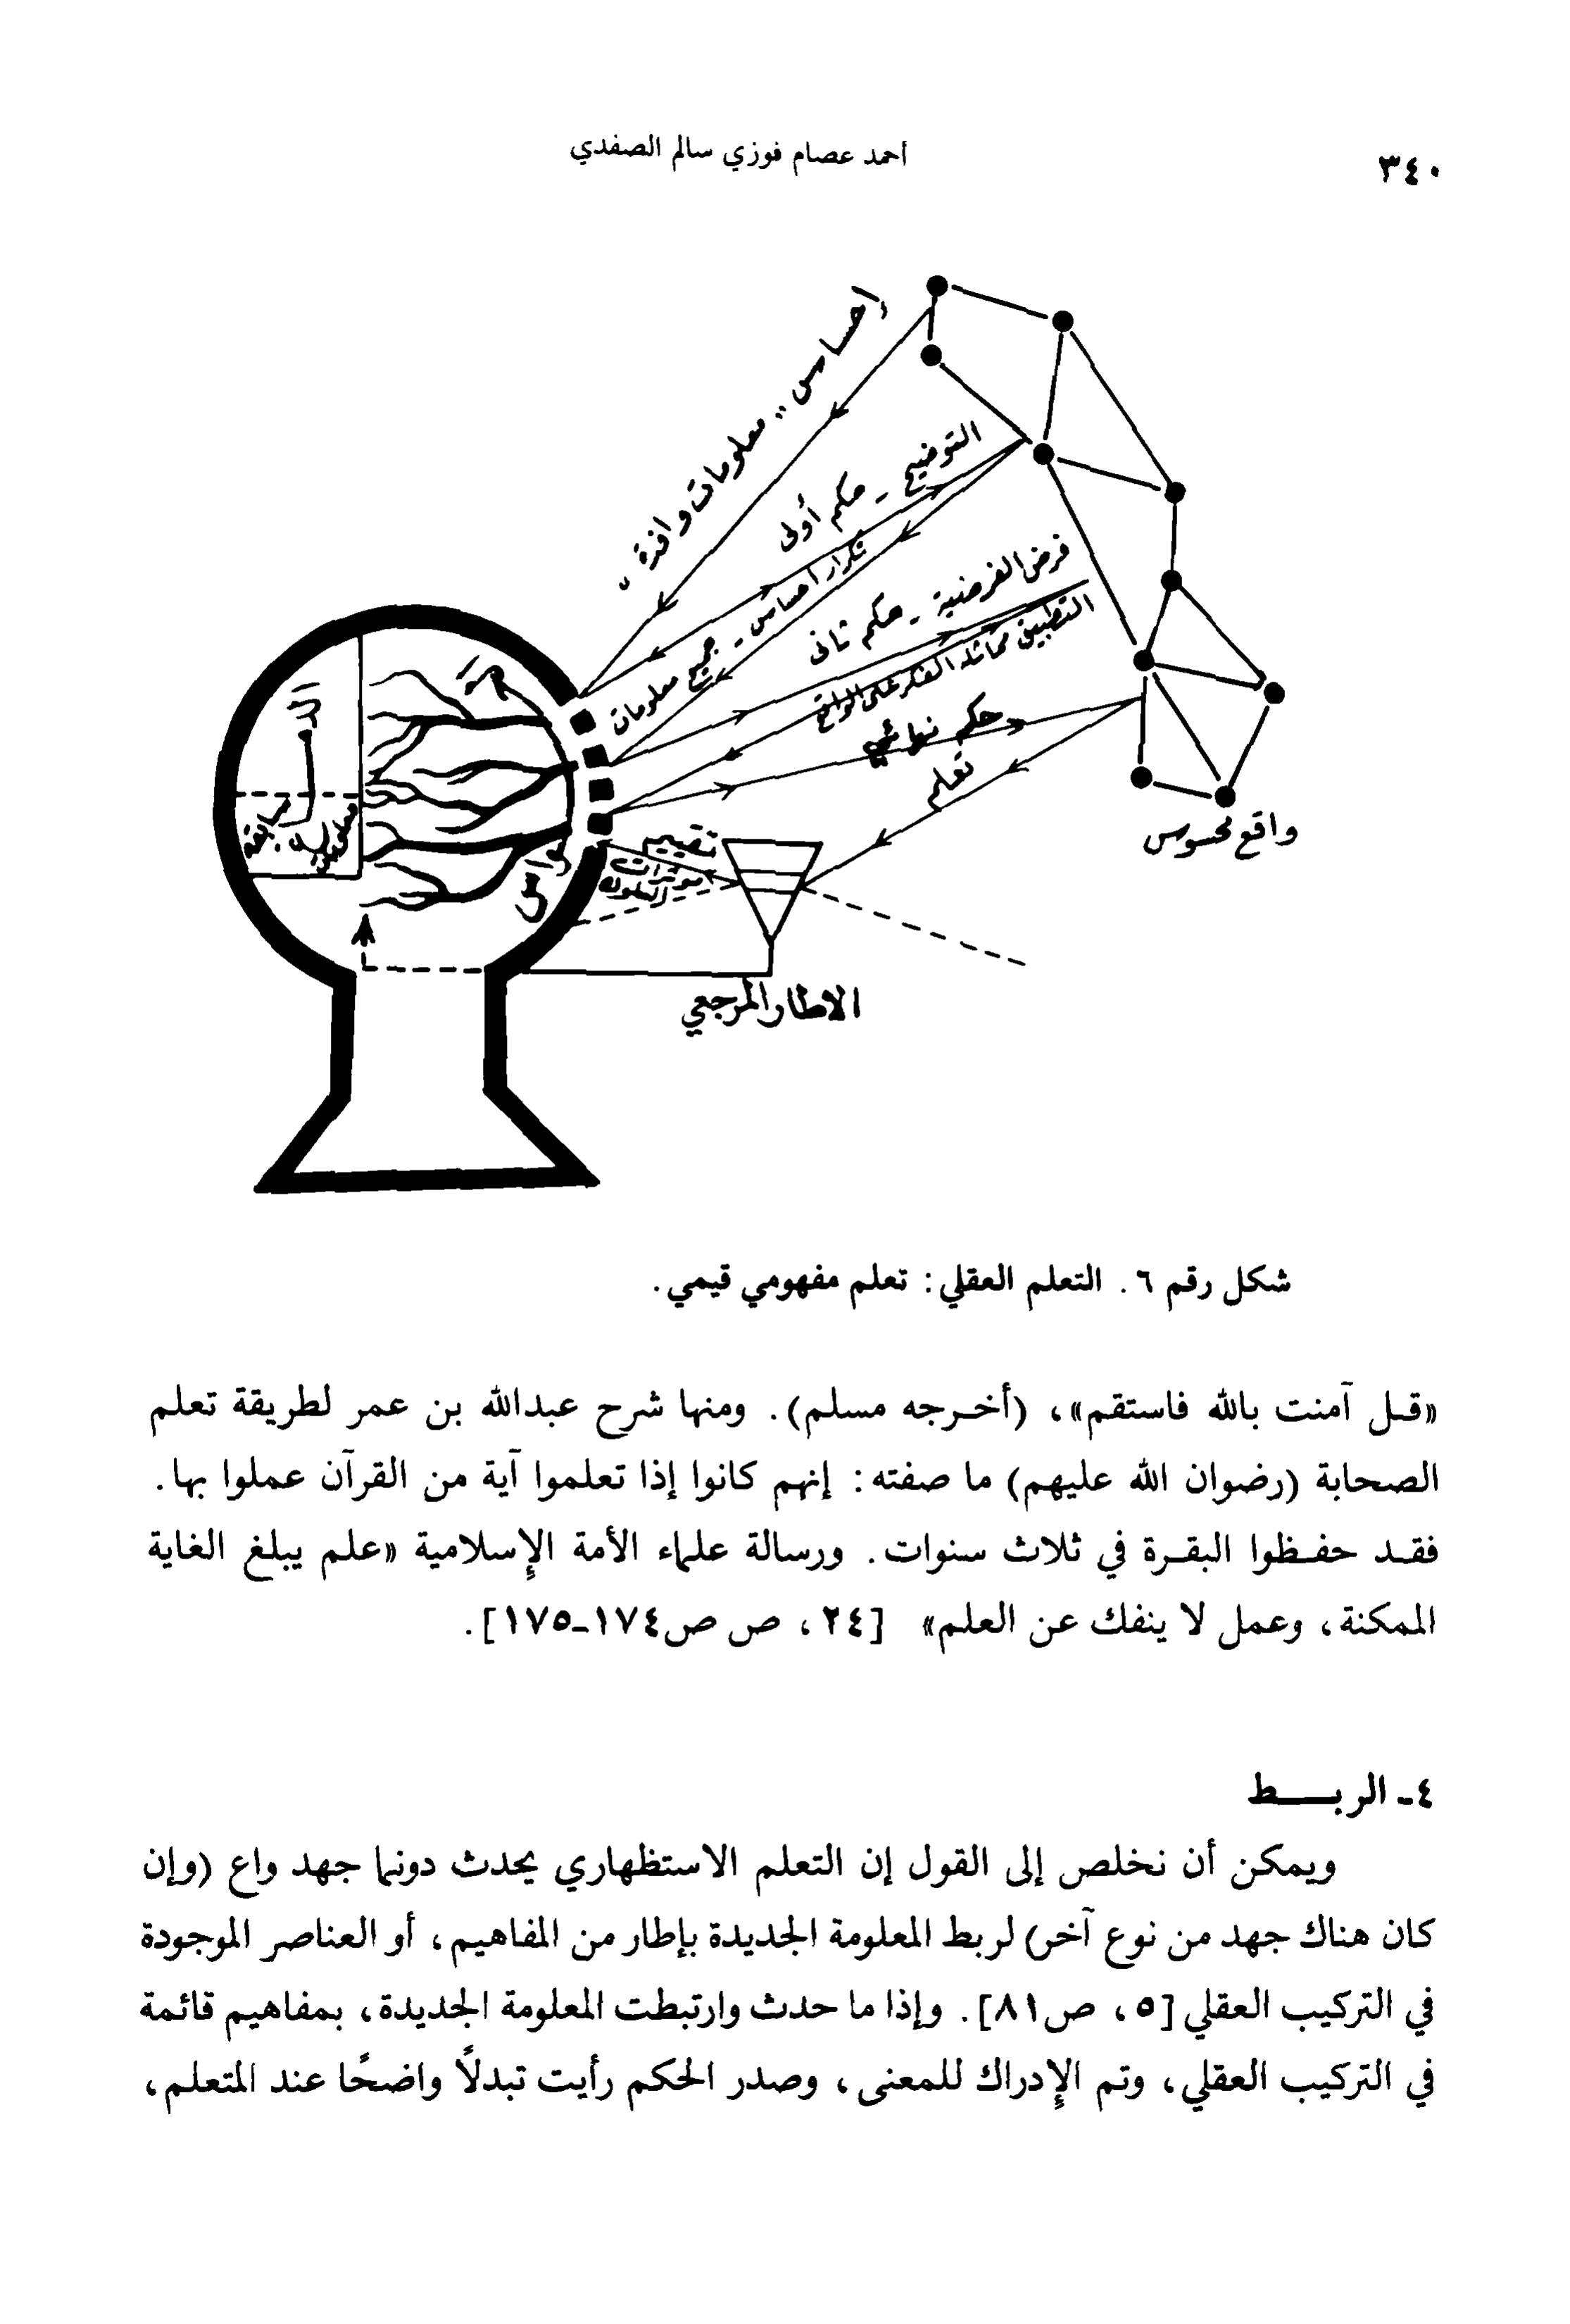 ٣٤٠
أحمد عصام فوزي سالم الصفدي
إحساس .. معلومات وافدة
التوضيح - حكم أولى
تكرار احساس - جمع معلومات
فرض الفرضية - حكم ثانى
التطبيق مماثلة الفكر على الواقع
حكم نهائي
تعلم
واقع محسوس
تقييم
مؤثرات
السلوك
الاطار المرجعي
شكل رقم ٦. التعلم العقلي: تعلم مفهومي قيمي.
«قل آمنت بالله فاستقم»، (أخرجه مسلم). ومنها شرح عبدالله بن عمر لطريقة تعلم
الصحابة (رضوان الله عليهم) ما صفته: إنهم كانوا إذا تعلموا آية من القرآن عملوا بها.
فقد حفظوا البقرة في ثلاث سنوات. ورسالة علماء الأمة الإسلامية «علم يبلغ الغاية
الممكنة، وعمل لا ينفك عن العلم» [٢٤، ص ص١٧٤-١٧٥].
٤- الربط
ويمكن أن نخلص إلى القول إن التعلم الاستظهاري يحدث دونما جهد واع (وإن
كان هناك جهد من نوع آخر) لربط المعلومة الجديدة بإطار من المفاهيم، أو العناصر الموجودة
في التركيب العقلي [٥، ص٨١]. وإذا ما حدث وارتبطت المعلومة الجديدة، بمفاهيم قائمة
في التركيب العقلي، وتم الإدراك للمعنى، وصدر الحكم رأيت تبدلاً واضحًا عند المتعلم،